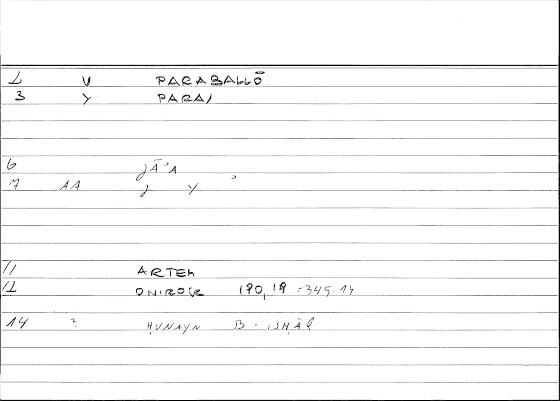 1 V PARABALLŌ
3 Y PARA/
6 jĀʾA
7 AA j Y
11 ARTEM
12 ONIROCR 190,19 = 345.14
14 ? ḤUNAYN B. ISḤĀQ